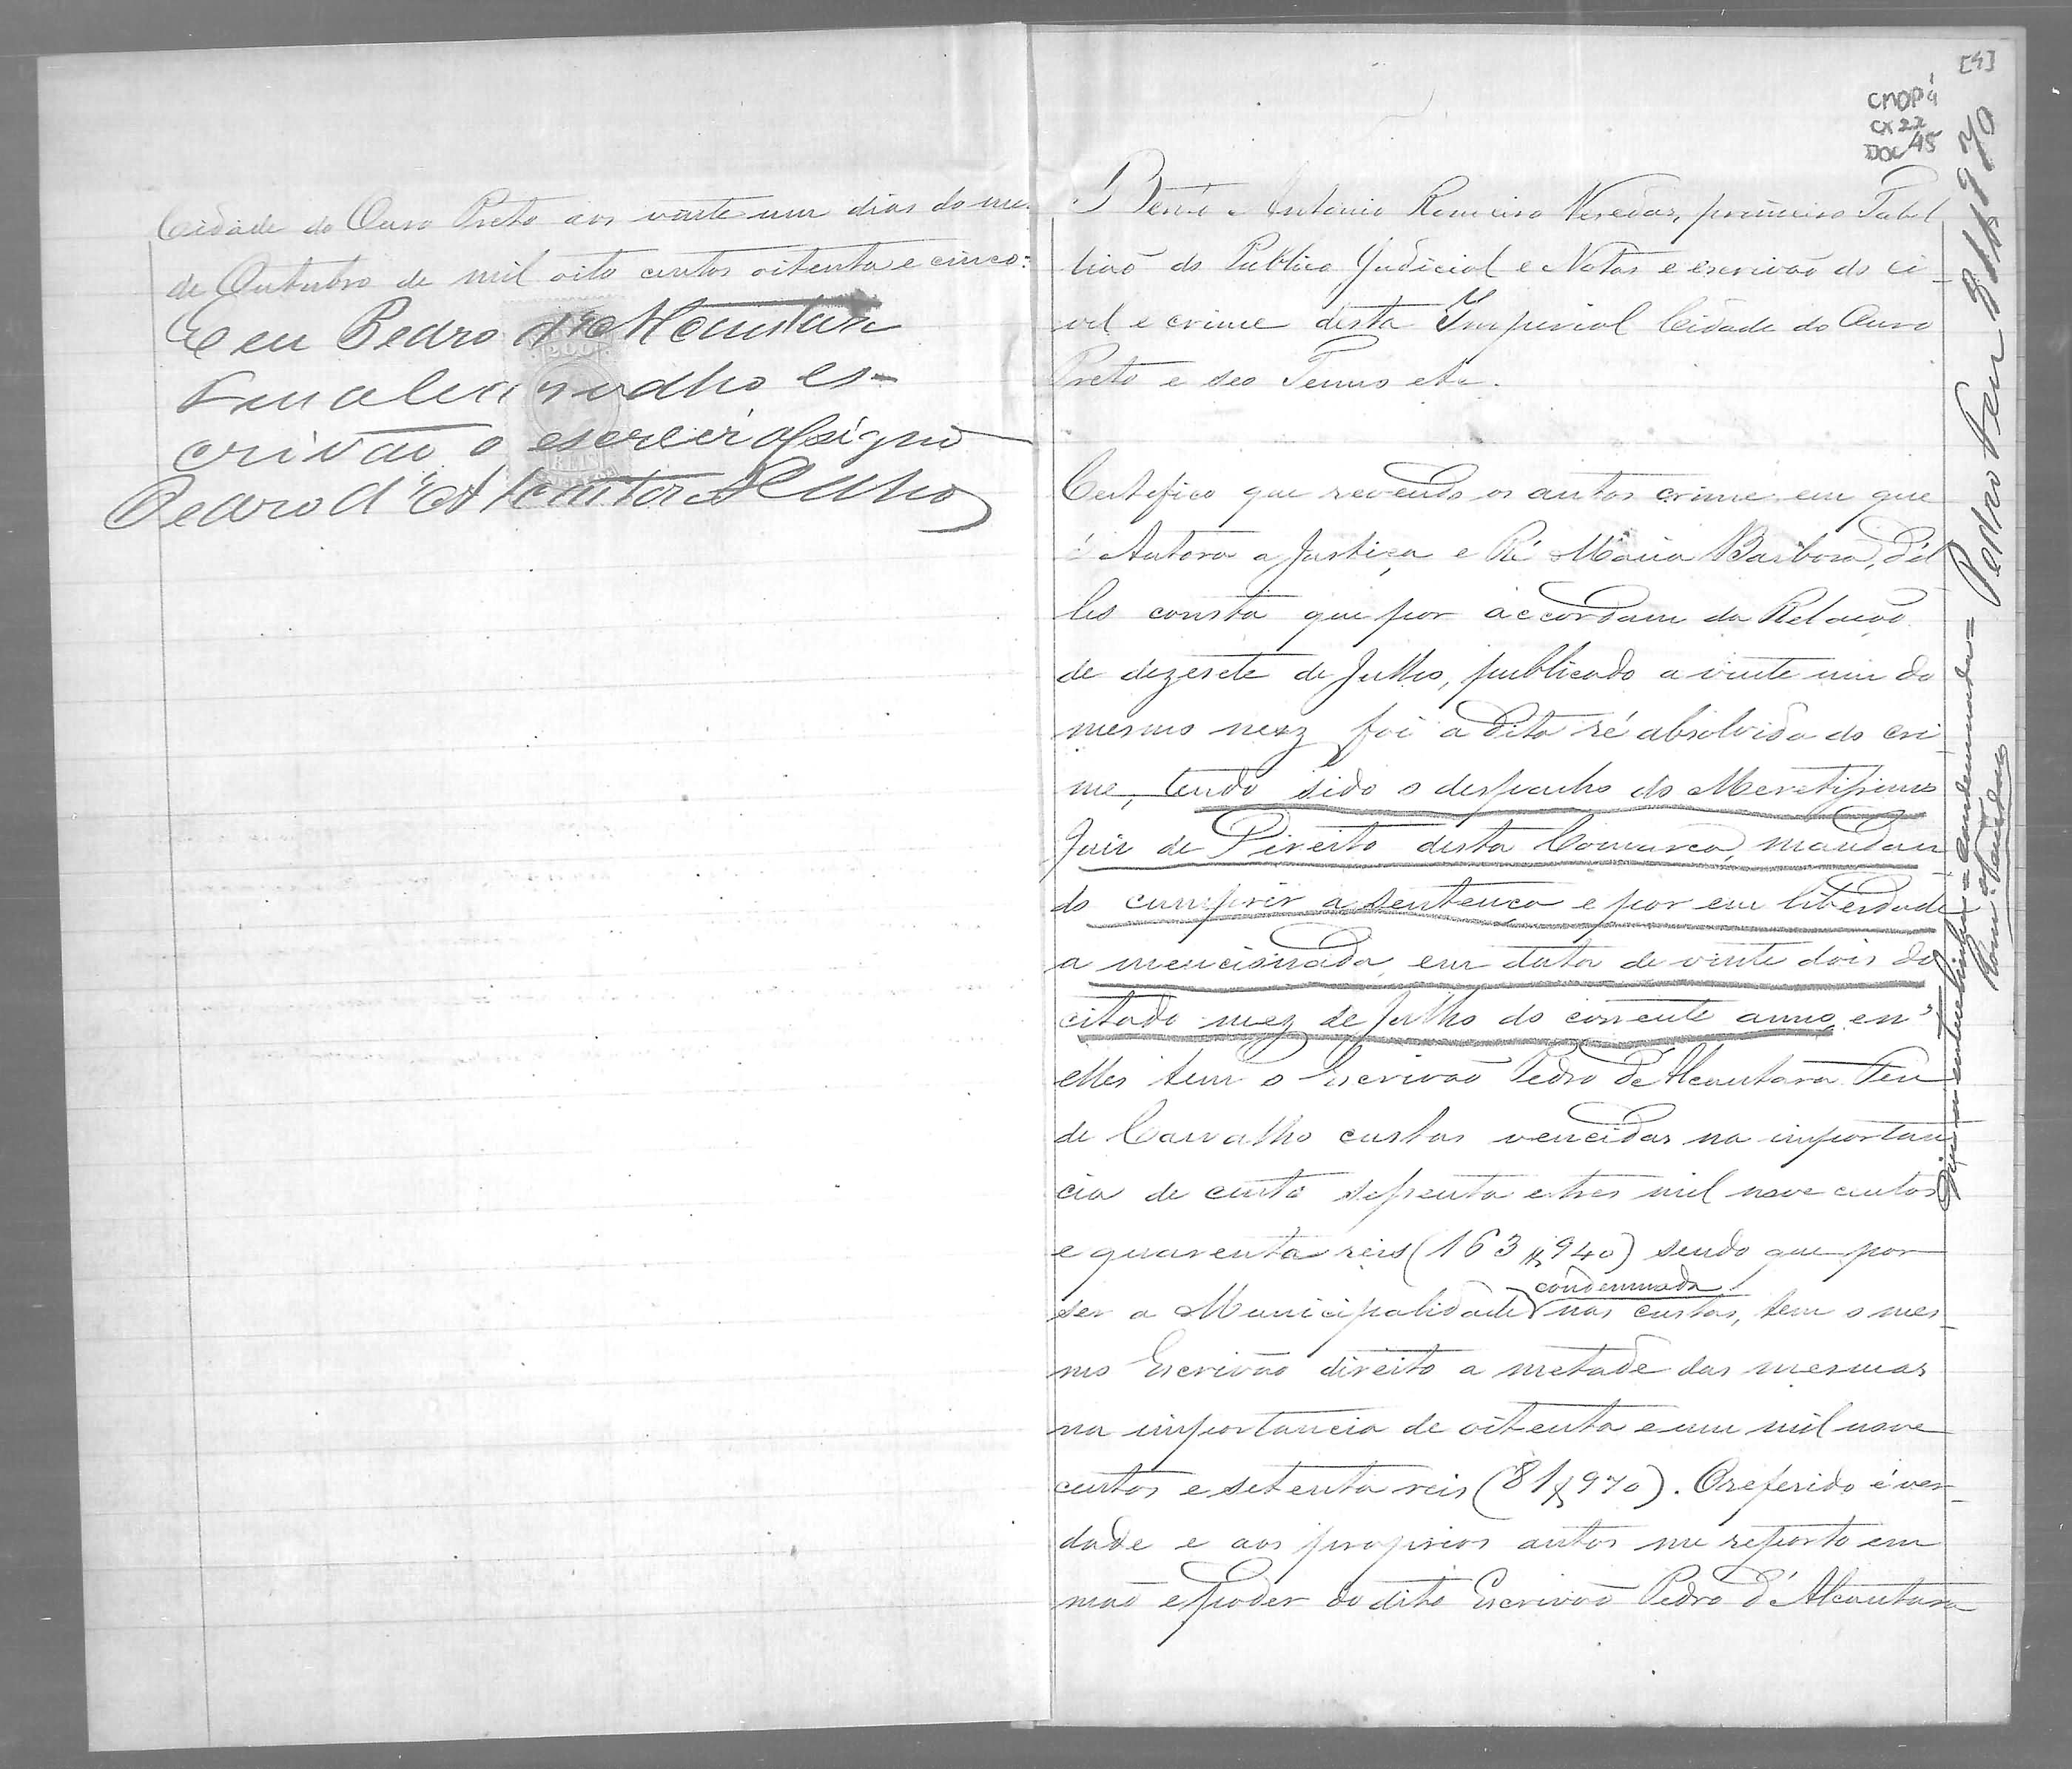 Cidade do Ouro Preto aos vinte um dias do me
de Outubro de mil oito centos oitenta e cinco:
E eu Pedro d'Alcantara
Feu de Carvalho es-
crivão o escrevi assigno
Pedro d'Alcantara Feu
200
REIS
[4]
CMOP
CX 22
DOC 45
Bento Antonio Romeiro Veredas, primeiro Tabel
lião do Publico Judicial e Notas e escrivão do ci-
vel e crime desta Imperial Cidade do Ouro
Preto e seo Termo etc.
Certifico que revendo os autos crime em que
é Autora a Justiça e Ré Maria Barbosa, d'el
les consta que por accordam da Relação
de dezesete de Julho, publicado a vinte um do
mesmo mez foi a dita ré absolvida do cri-
me, tendo sido o despacho do Meretissimo
Juiz de Direito desta Comarca, mandan-
do cumprir a sentença e por em liberdade
a mencionada, em data de vinte dois do
citado mez de Julho do corrente anno, en'
elles tem o Escrivão Pedro de Alcantara Feu
de Carvalho custas vencidas na importan
cia de cento sessenta e tres mil nove centos
e quarenta reis (163$940) sendo que por
ser a Municipalidade condemnada nas custas, tem o mes-
mo Escrivão direito a metade das mesmas
na importancia de oitenta e um mil nove
centos e setenta reis (81$970). O referido é ver-
dade e aos proprios autos me reporto em
mão e poder do dito Escrivão Pedro d'Alcantara
Pedro Feu 81$970
Diz a entrelinha = condemnada =